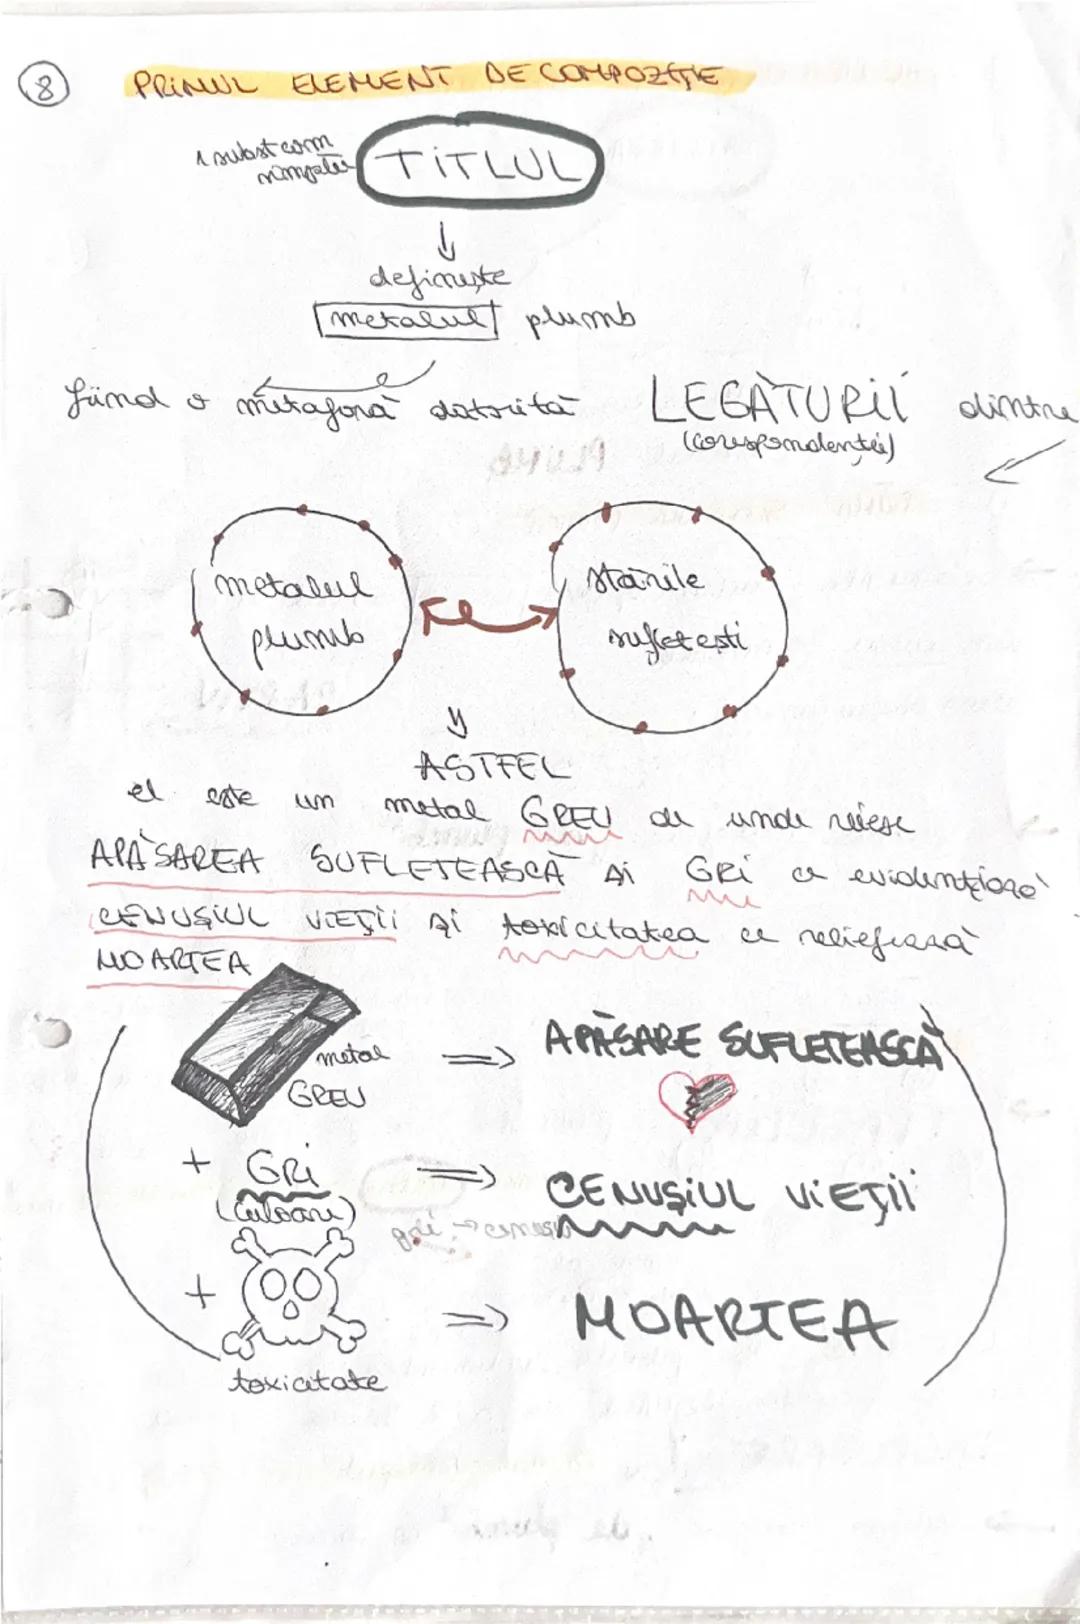 8
PRIMUL ELEMENT DE COMPOZIȚIE
1 subst com
simplu
TITLUL
definește
metalul plumb
fiind o metaforă datorită LEGĂTURII dintre
(corespondenței)
PLUMB
metalul
plumb
stările
sufletești
ASTFEL
el este un metal GREU de unde reiese
APĂSAREA SUFLETEASCĂ și GRI ce evidențiază
CENUȘIUL VIEȚII și toxicitatea ce reliefează
MOARTEA
metal
GREU
APĂSARE SUFLETEASCĂ
+ GRI
(culoare)
gri → cenușiu
CENUȘIUL VIEȚII
+
MOARTEA
toxicitate